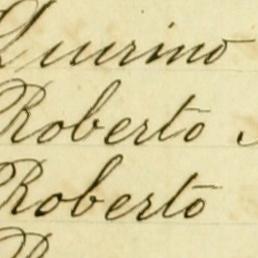 Quirino
Roberto
Roberto